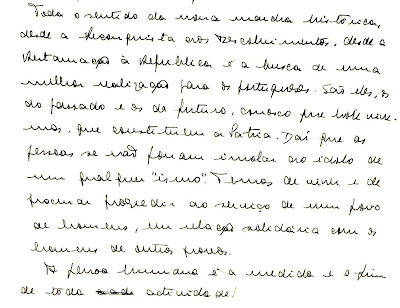 Todo o sentido da nossa marcha histórica,
desde a Reconquista aos Descobrimentos, desde a
Restauração à República é a busca de uma
melhor realização para os portugueses. São eles, os
do passado e os do futuro, conosco que hoje vive-
mos, que constituem a Pátria. Daí que as
pessoas se não possam imolar ao ídolo de
um qualquer "ismo". Temos de viver e de
procurar progredir ao serviço de um povo
de homens, em relação solidária com os
homens de outros povos.
A pessoa humana é a medida e o fim
de toda actividade!